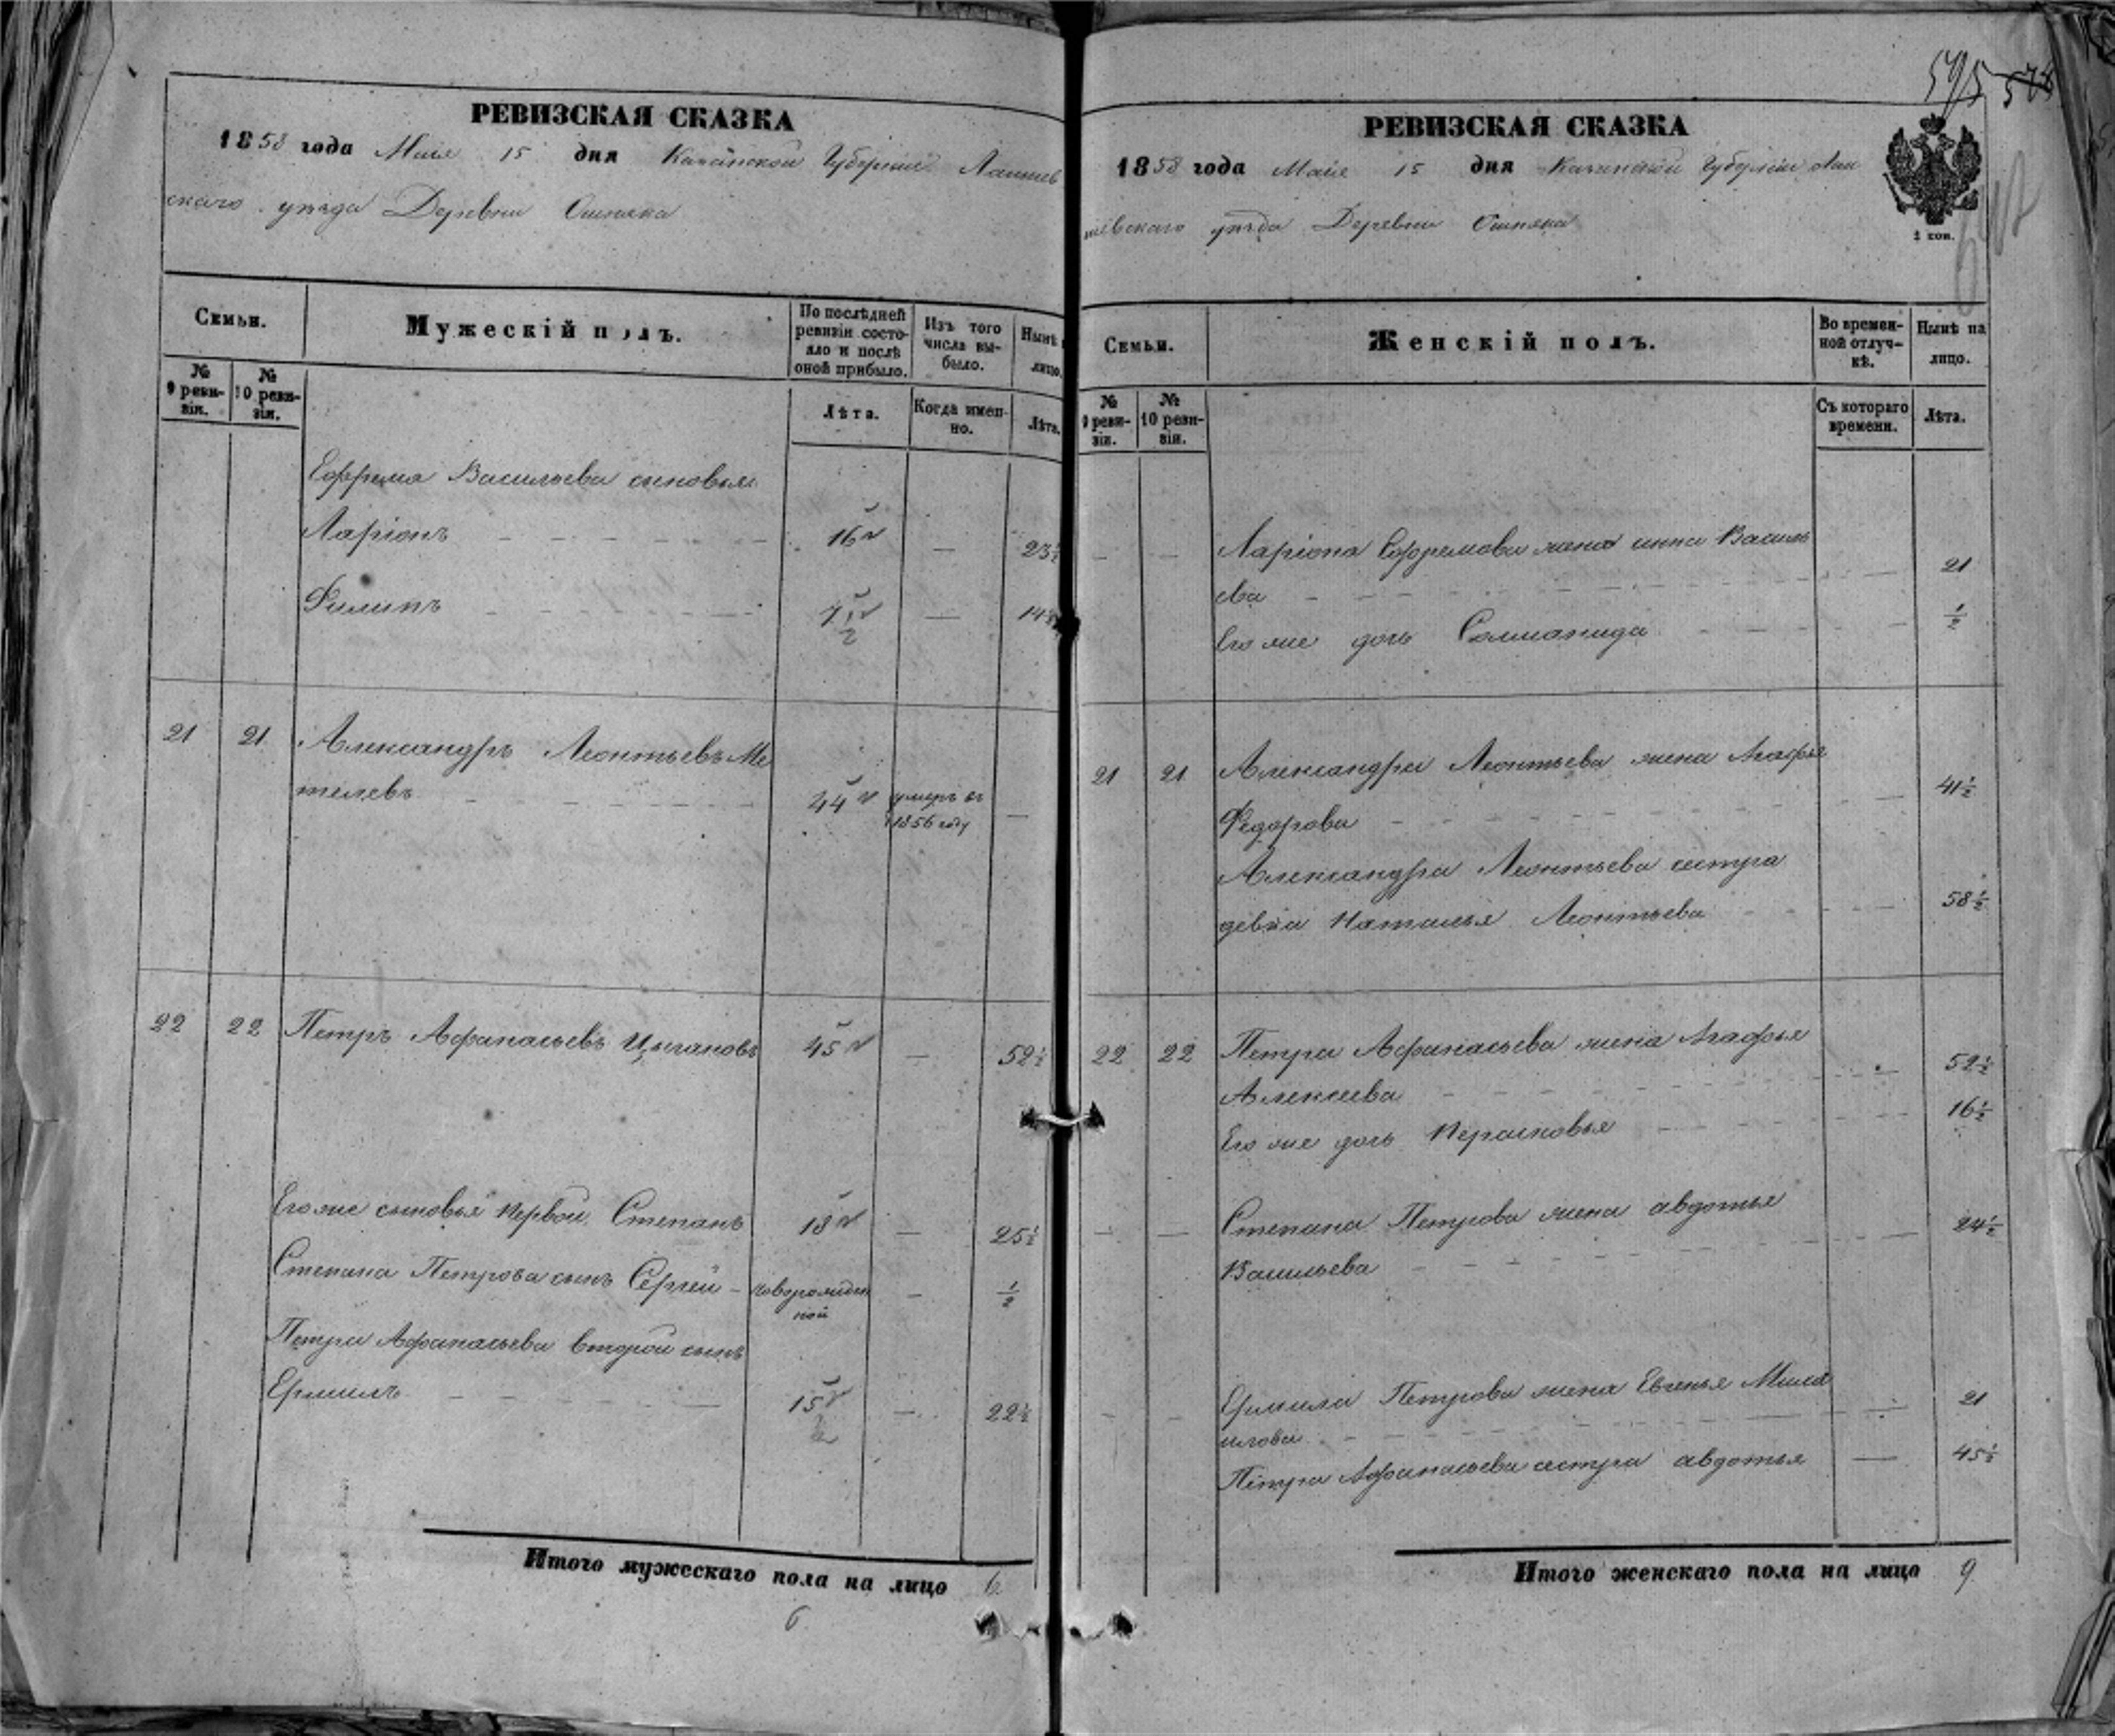 РЕВИЗСКАЯ СКАЗКА
1858 года Маія 15 дня Казанской Губерніи Лаишев
скаго уѣзда Деревни Ошняка
Семьи.
Мужескій полъ.
По послѣдней ревизіи состо-
яло и послѣ
оной прибыло.
Изъ того
числа вы-
было.
Нынѣ
лицо.
№
9 реви-
зіи.
№
10 реви-
зіи.
Лѣта.
Когда имен-
но.
Лѣта.
Ефрема Васильева сыновья
Ларіонъ 16 — 23½
Филипъ 7½ — 14½
21 21 Александръ Леонтьевъ Ме
телевъ 44 умеръ въ
1856 году —
22 22 Петръ Афанасьевъ Цыгановъ 45 — 52½
Его же сыновья первой Степанъ 18 — 25½
Степана Петрова сынъ Сергей — новорожден
ной — ½
Петра Афанасьева второй сынъ
Ермилъ 15 — 22½
Итого мужескаго пола на лицо 6
6
575 578
РЕВИЗСКАЯ СКАЗКА
1858 года Маіе 15 дня Казанской Губерніи Лаи
шевскаго уѣзда Деревни Ошняка
Семьи.
Женскій полъ.
Во времен-
ной отлуч-
кѣ.
Нынѣ на
лицо.
№
9 реви-
зіи.
№
10 реви-
зіи.
Съ котораго
времени.
Лѣта.
— — Ларіона Ефремова жена анна Василь
ева — 21
Его же дочь Соломанида — ½
21 21 Александра Леонтьева жена Агафья
Федорова — 41½
Александра Леонтьева сестра
девка Наталья Леонтьева — 58½
22 22 Петра Афанасьева жена Агафья
Алексеева — 52½
Его же дочь Персковья — 16½
— — Степана Петрова жена авдотья
Васильева — 24½
— — Ермила Петрова жена Евгенья Миха
илова — 21
Петра Афанасьева сестра авдотья — 45½
Итого женскаго пола на лицо 9